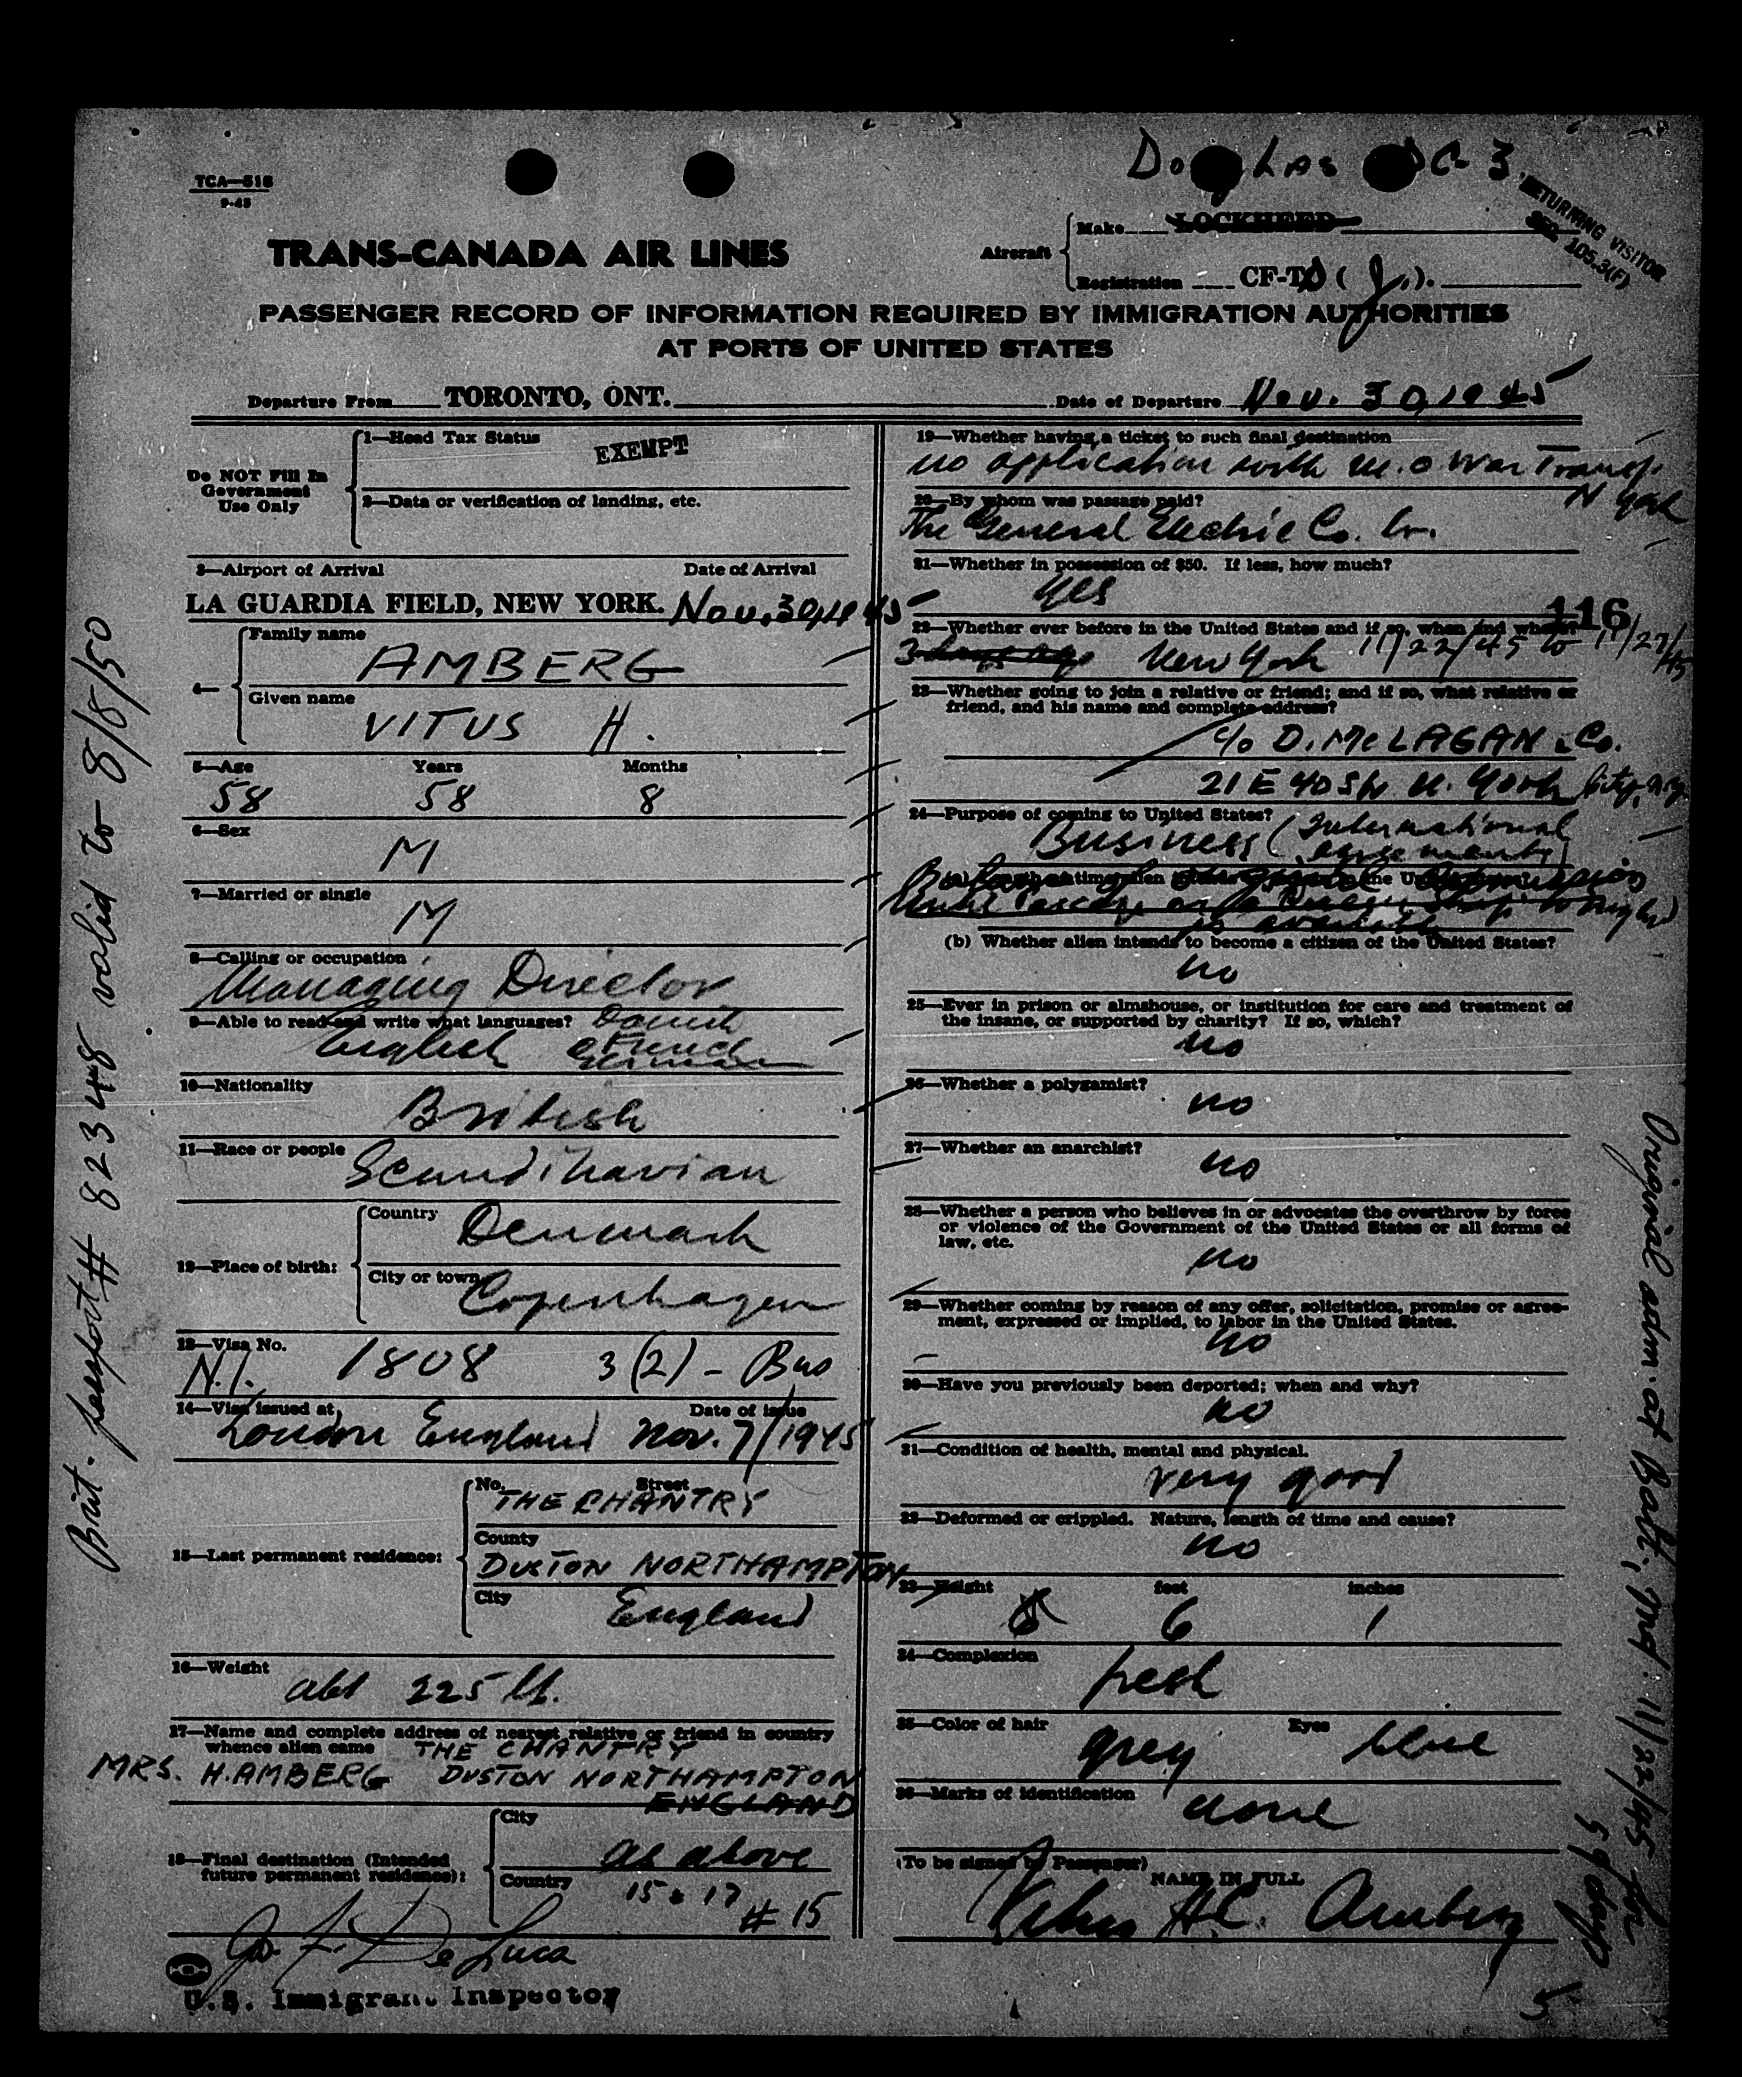 Douglas DC-3
TCA—518
9-45
RETURNING VISITOR
SEC. 105.3(F)
Make LOCKHEED
TRANS-CANADA AIR LINES
Aircraft
Registration CF-T ( J. ).
PASSENGER RECORD OF INFORMATION REQUIRED BY IMMIGRATION AUTHORITIES
AT PORTS OF UNITED STATES
Departure From TORONTO, ONT. Date of Departure Nov. 30, 1945
Do NOT Fill In
Government
Use Only
1—Head Tax Status
EXEMPT
2—Data or verification of landing, etc.
3—Airport of Arrival Date of Arrival
LA GUARDIA FIELD, NEW YORK. Nov. 30, 1945
4—
Family name
AMBERG
Given name
VITUS H.
5—Age Years Months
58 58 8
6—Sex
M
7—Married or single
M
8—Calling or occupation
Managing Director
9—Able to read and write what languages? Danish
English & French
German
10—Nationality
British
11—Race or people
Scandinavian
12—Place of birth:
Country
Denmark
City or town
Copenhagen
13—Visa No.
N.I. 1808 3(2) - Bus
14—Visa issued at Date of issue
London England Nov. 7/1945
15—Last permanent residence:
No. Street
THE CHANTRY
County
DUSTON NORTHAMPTON
City
England
16—Weight
abt 225 lb.
17—Name and complete address of nearest relative or friend in country
whence alien came THE CHANTRY
MRS. H. AMBERG DUSTON NORTHAMPTON
ENGLAND
18—Final destination (Intended
future permanent residence):
City
as above
Country
15 & 17
# 15
Jos. F. De Luca
U.S. Immigrant Inspector
19—Whether having a ticket to such final destination
no application with M. o War Transp.
N York
20—By whom was passage paid?
The General Electric Co.
21—Whether in possession of $50. If less, how much?
yes
116
22—Whether ever before in the United States and if so, when and where?
3 days ago New York 11/22/45 to 11/27/45
23—Whether going to join a relative or friend; and if so, what relative or
friend, and his name and complete address?
c/o D. McLAGAN & Co.
21 E 40 Str N. York City, N.Y.
24—Purpose of coming to United States?
Business (International
agreements)
(b) Whether alien intends to become a citizen of the United States?
no
25—Ever in prison or almshouse, or institution for care and treatment of
the insane, or supported by charity? If so, which?
no
26—Whether a polygamist?
no
27—Whether an anarchist?
no
28—Whether a person who believes in or advocates the overthrow by force
or violence of the Government of the United States or all forms of
law, etc.
no
29—Whether coming by reason of any offer, solicitation, promise or agree-
ment, expressed or implied, to labor in the United States.
no
30—Have you previously been deported; when and why?
no
31—Condition of health, mental and physical.
very good
32—Deformed or crippled. Nature, length of time and cause?
no
33—Height feet inches
6 1
34—Complexion
fresh
35—Color of hair Eyes
grey blue
36—Marks of identification
none
(To be signed by Passenger)
NAME IN FULL
Vitus H.C. Amberg
5
Brit. passport # 82348 valid to 8/8/50
Original adm. at Balt., Md. 11/22/45 for
59 days